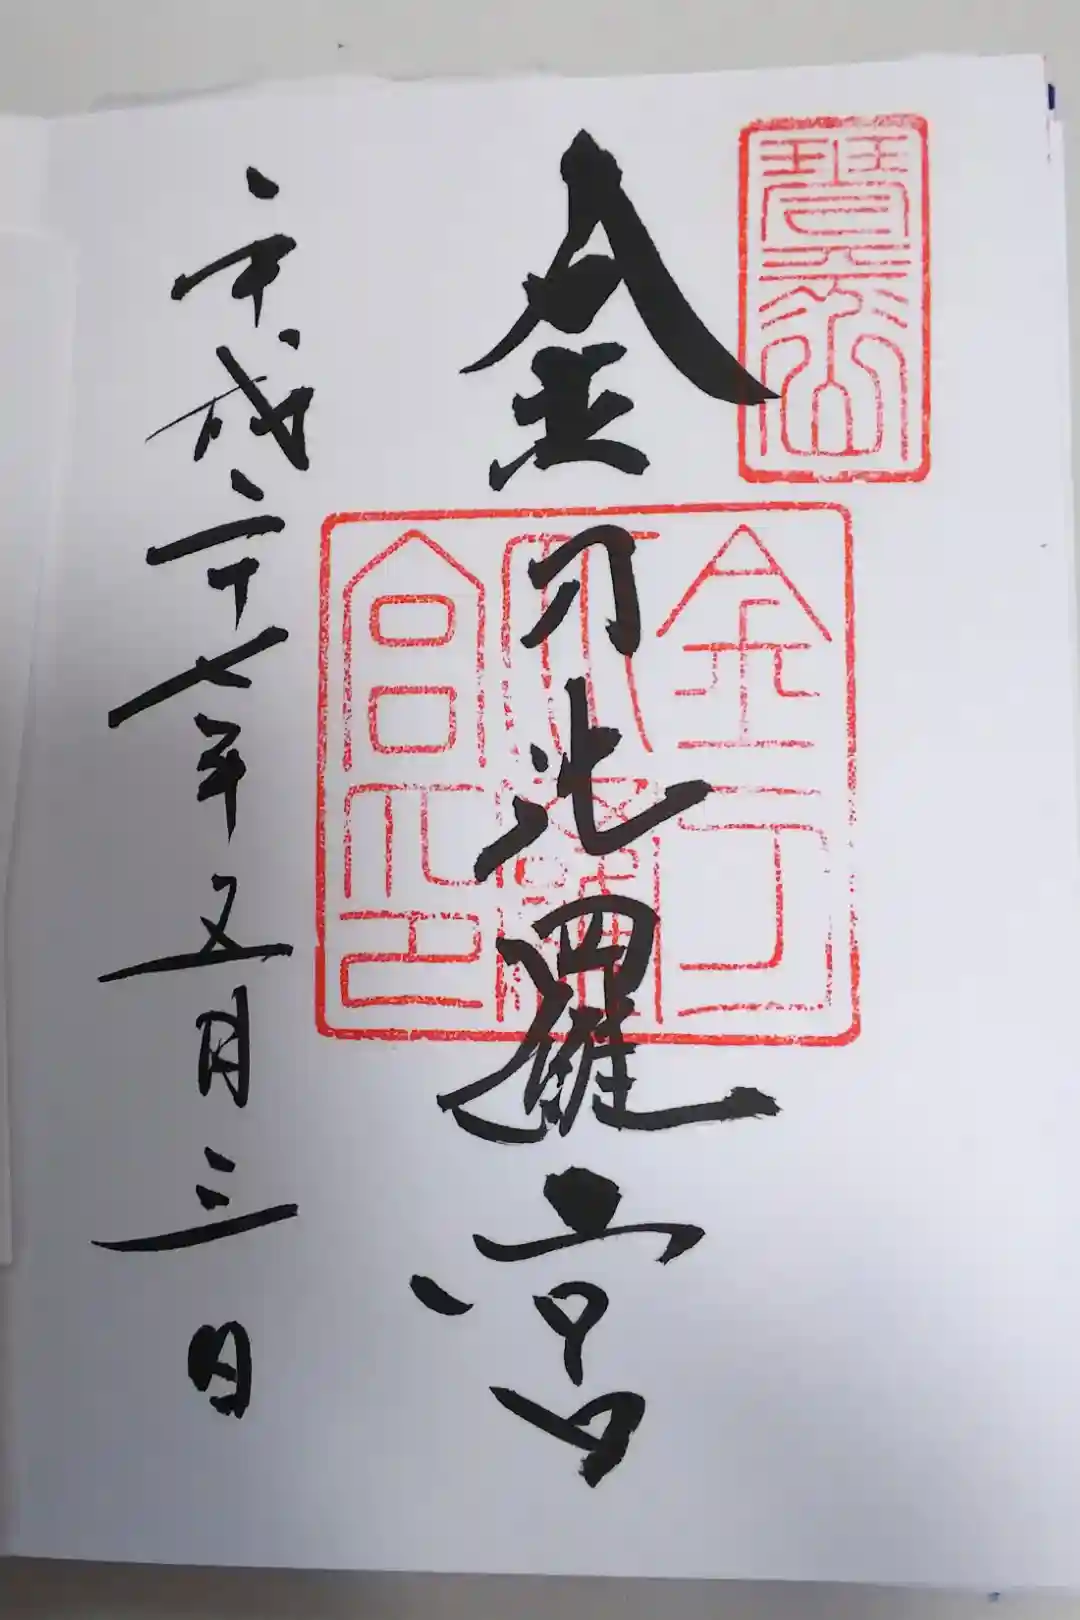 琴平山
金刀比羅宮
金刀
比羅
宮之印
平成二十七年五月三日